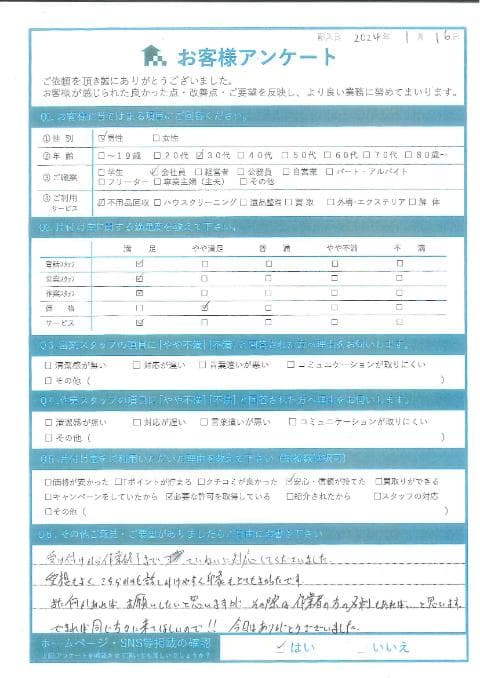 記入日 2024年 1月 16日
お客様アンケート
ご依頼を頂き誠にありがとうございました。
お客様が感じられた良かった点・改善点・ご要望を反映し、より良い業務に努めてまいります。
Q1. お客様に当てはまる項目にご回答ください。
①性 別 ☑男性 □女性
②年 齢 □~19歳 □20代 ☑30代 □40代 □50代 □60代 □70代 □80歳~
③ご職業 □学生 ☑会社員 □経営者 □公務員 □自営業 □パート・アルバイト
□フリーター □専業主婦(主夫) □その他
④ご利用サービス ☑不用品回収 □ハウスクリーニング □遺品整理 □買取 □外構・エクステリア □解体
満足 やや満足 普通 やや不満 不満
電話スタッフ ☑ □ □ □ □
営業スタッフ ☑ □ □ □ □
作業スタッフ ☑ □ □ □ □
価格 □ ☑ □ □ □
サービス ☑ □ □ □ □
Q3. 営業スタッフの項目に[やや不満][不満]と回答された方へ理由をお伺いします。
□清潔感が無い □対応が遅い □言葉遣いが悪い □コミュニケーションが取りにくい
□その他( )
Q4. 作業スタッフの項目に[やや不満][不満]と回答された方へ理由をお伺いします。
□清潔感が無い □対応が遅い □言葉遣いが悪い □コミュニケーションが取りにくい
□その他( )
□価格が安かった □Tポイントが貯まる □クチコミが良かった ☑安心・信頼が持てた □買取りができる
□キャンペーンをしていたから ☑必要な許可を取得している □紹介されたから □スタッフの対応
□その他( )
Q6. その他ご意見・ご要望がありましたらご自由にお書き下さい
受け付けから作業終了まで ていねいに対応してくださいました。
愛想もよく こちらからも話しかけやすく印象もとてもよかったです。
また何かあれば お願いしたいと思いますが その際は 作業者の方の 思います
できれば同じ方々に来てほしいので!! 今回はありがとうございました。
ホームページ・SNS等掲載の確認 ☑はい □いいえ
上記アンケートを掲載させて頂いても宜しいでしょうか?